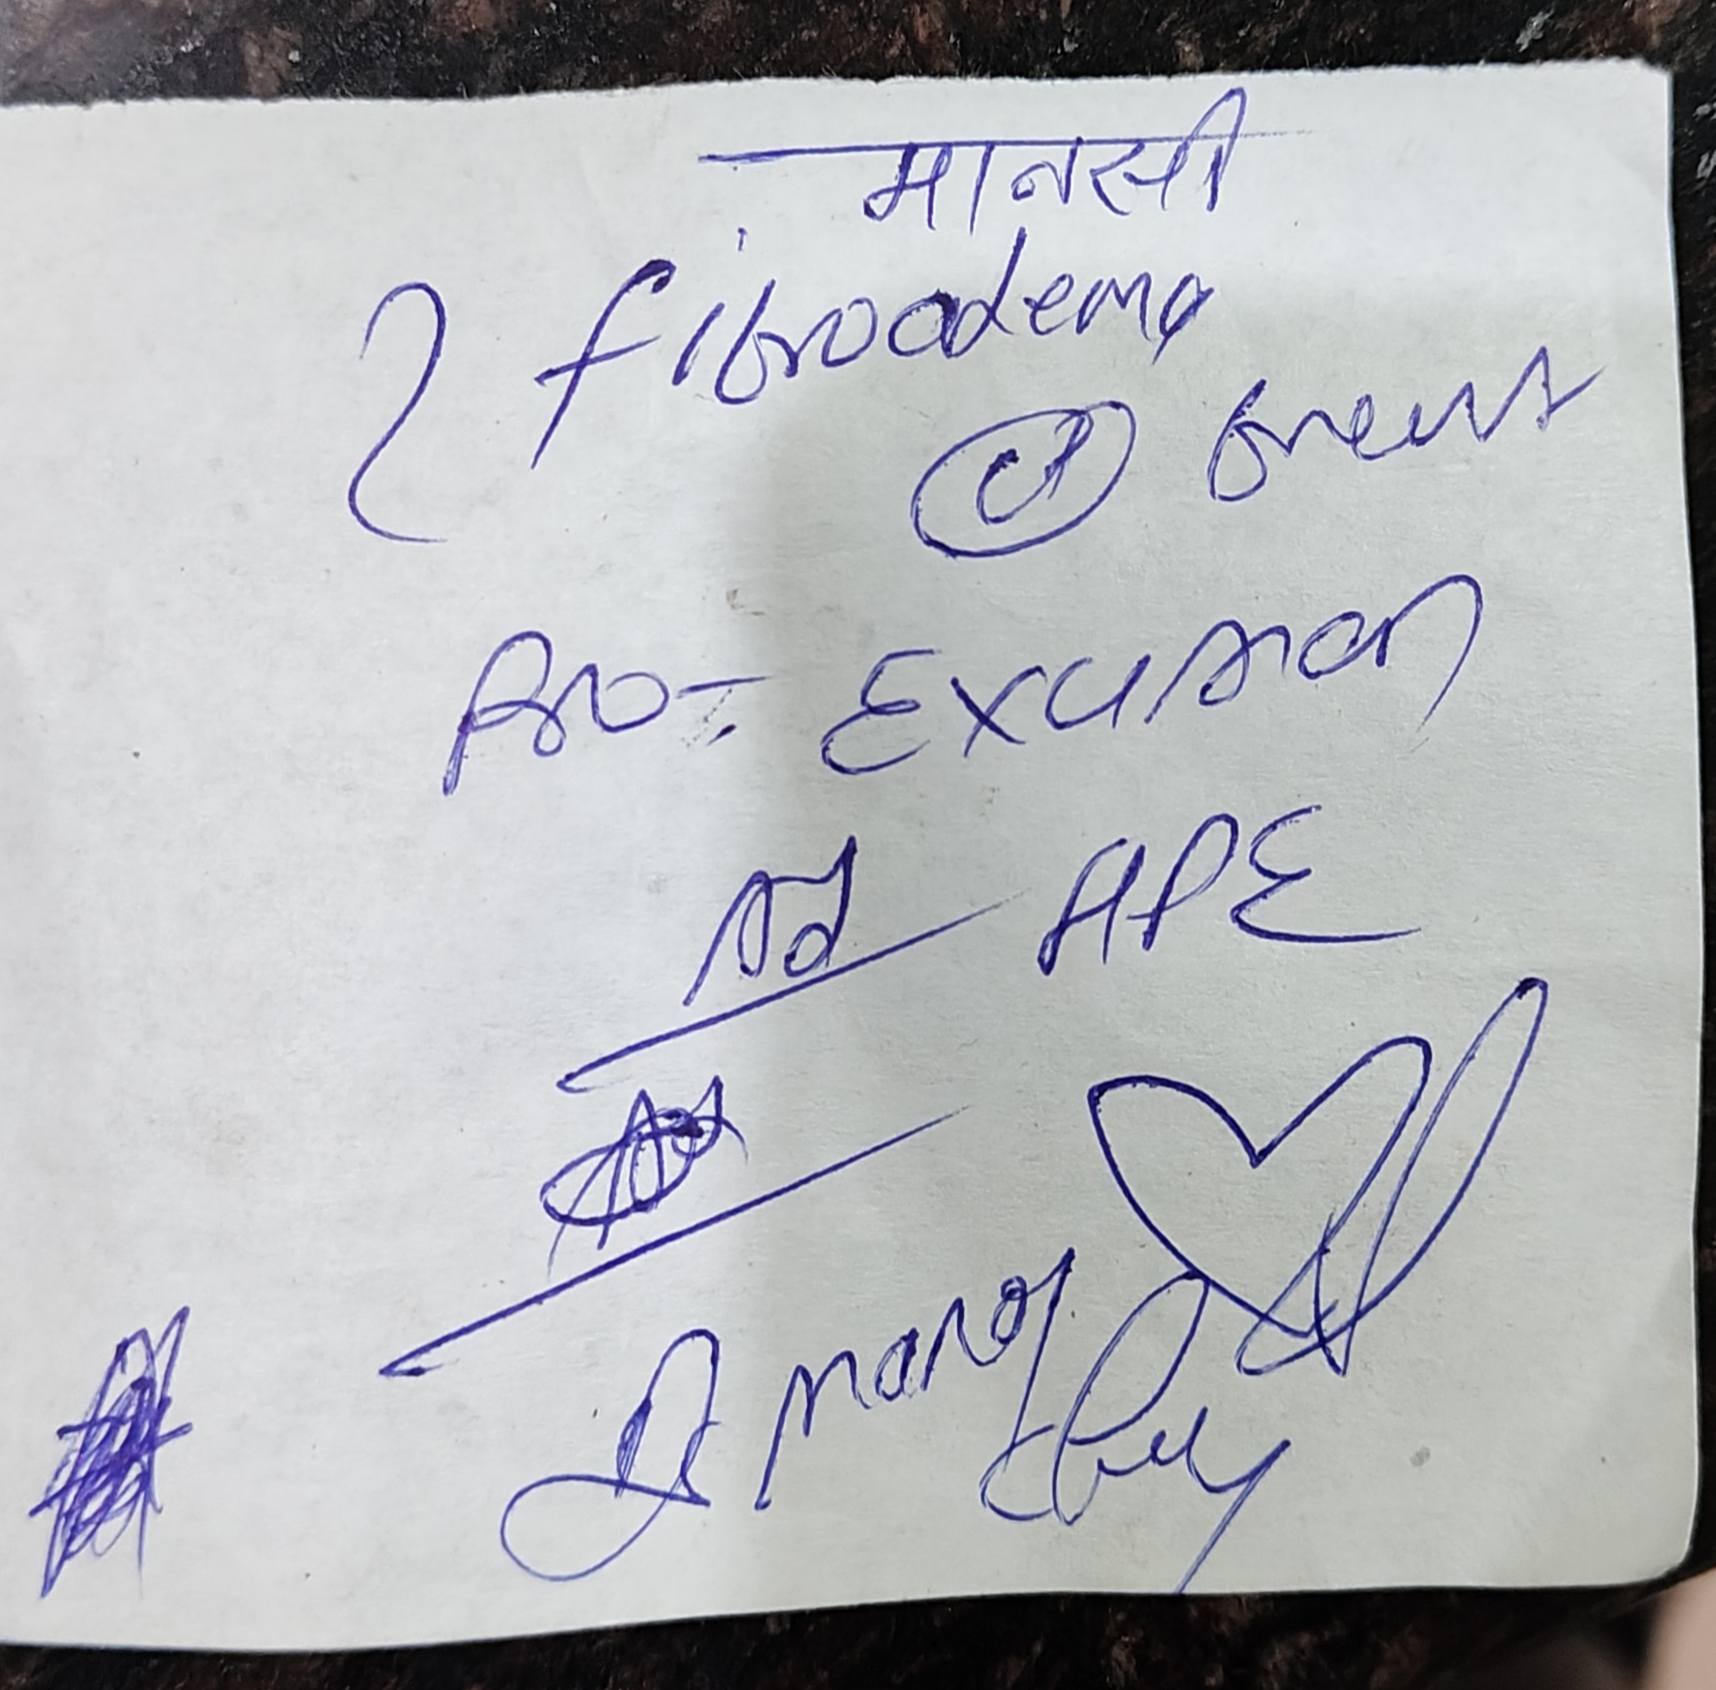 मानसी
? fibroadema
breast
Pro-: Excision
Ad HPE
Dr manoj